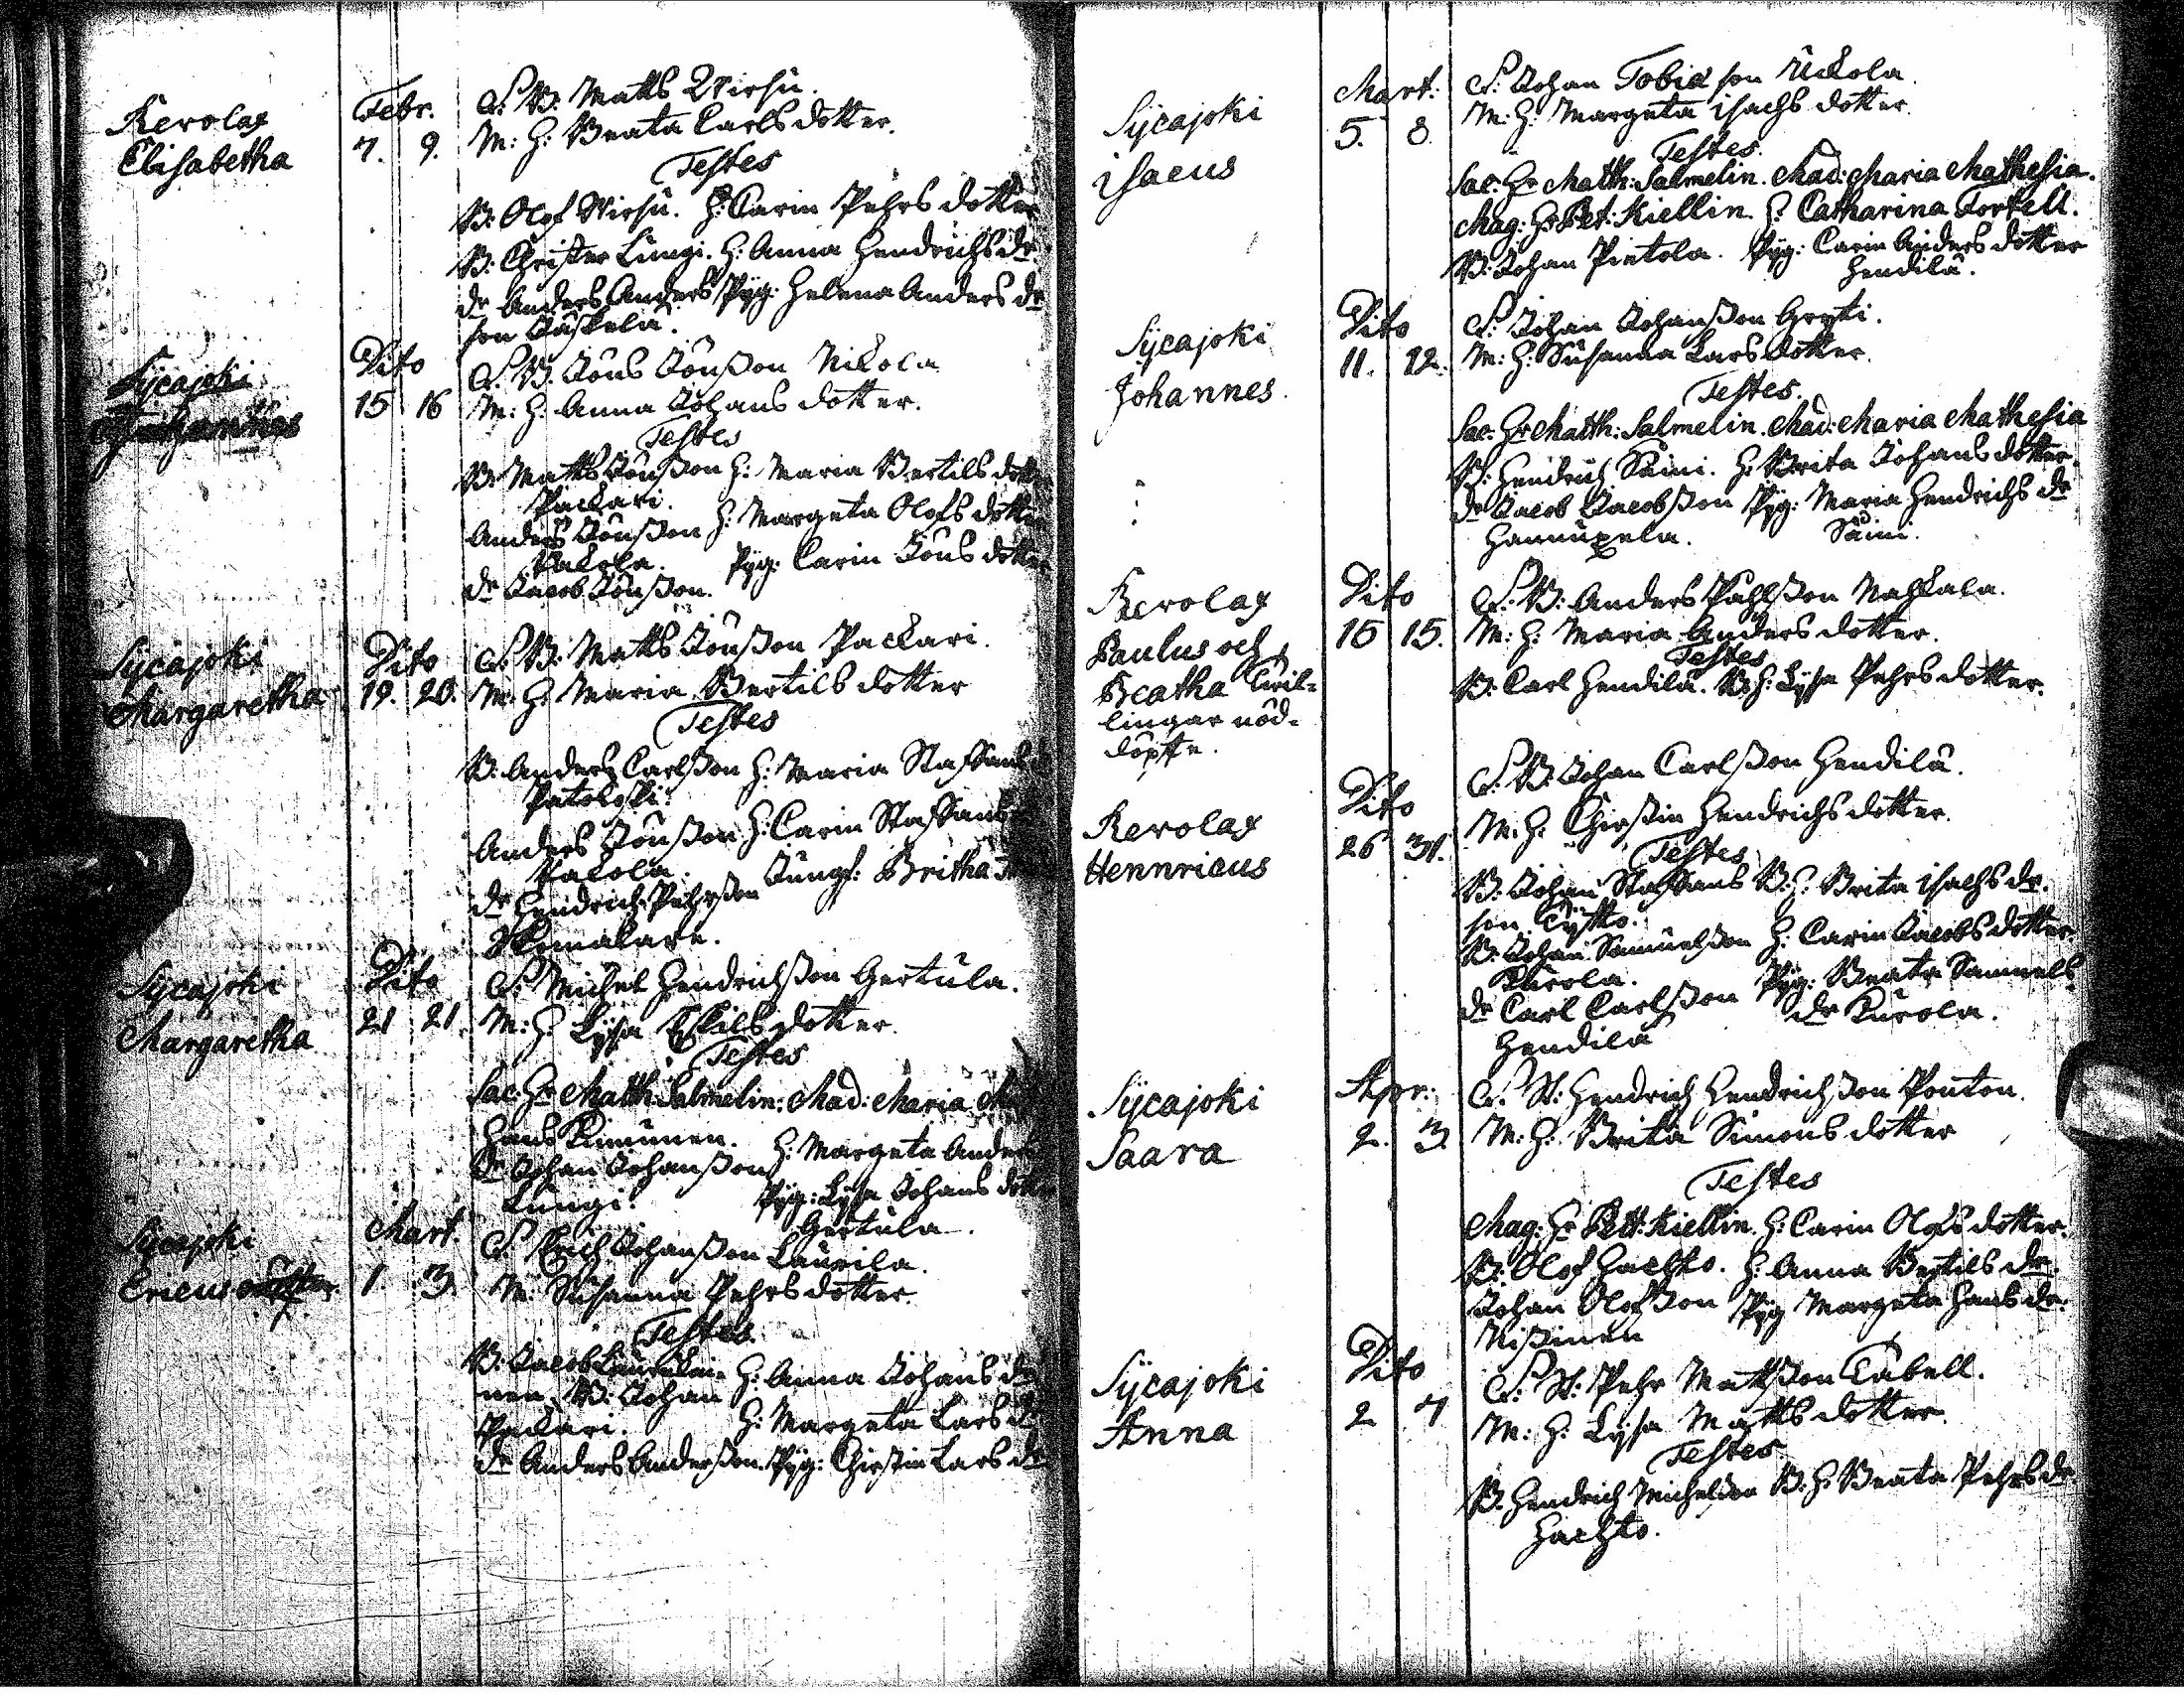 Revolax
Elisabetha
Febr.
7. 9.
F. B: Matts Wirsu.
M: H: Beata Carls dotter.
Testes
B: Olof Wirsu. H: Carin Pehrs dotter
B: Christer Lungi. H: Anna Hendrichs dr.
dr Anders Anders Pyg: Helena Anders dr
son Jäskelä.
Sijcajoki
Dito
15 16
F. B. Jöns Jönsson Nikola
M: H: Anna Johans dotter.
Testes
B: Matts Jönsson H: Maria Bertils dotter
Packari.
Anders Jönsson H: Margeta Olofs dotter
Pakola. Pyg: Carin Jöns dotter
dr Jacob Jönsson.
Sijcajoki
Margaretha
Dito
19. 20.
F. B: Matts Jönsson Packari.
M: H: Maria Bertils dotter
Testes
B: Anders Carlsson H: Maria Staffans
Patokoski.
Anders Jönsson H: Carin Staffans
Pakola. Jungf: Britha
dr Hendrich Pehrsson
Skomakare.
Sijcajoki
Margaretha
Dito
21 21.
F. Michel Hendrichsson Gertula.
M: H: Lisa Eskils dotter.
Testes
Sac: Hr Matth: Salmelin. Mad: Maria
Hans Kinnunen. H: Margeta Anders
dr Johan Johansson
Lungi. Pyg: Lisa Johans dotter
Gertula.
Sijcajoki
Ericus
Mart.
1. 3.
F. Erich Johansson Laurila.
M. Susanna Pehrs dotter.
Testes.
B: Jacob H: Anna Johans dr
nen. B: Johan
Packari. H: Margeta Lars dr
dr Anders Andersson. Pyg: Chirstin Lars dr
Sijcajoki
Isacus
Mart:
5. 8.
F: Johan Tobias son Uckola.
M: H: Margeta Isachs dotter.
Testes.
Sac: Hr Matth: Salmelin. Mad: Maria Mathesia.
Mag: Hr Pet: Kiellin. H: Catharina Forsell.
B: Johan Pietola. Pyg: Carin Anders dotter
Hendilä.
Sijcajoki
Johannes.
Dito
11. 12.
F: Johan Johansson Gryti.
M: H: Susanna Lars dotter.
Testes.
Sac: Hr Matth: Salmelin. Mad: Maria Mathesia
B: Hendrich Säini. H: Brita Johans dotter.
dr Jacob Jacobsson Pyg: Maria Hendrichs dr
Hannuxela. Säini.
Revolax
Paulus och
Beatha Twil=
lingar nöd=
döpte.
Dito
15 15.
F: B: Anders Påhlsson Nahkala.
M: H: Maria Anders dotter.
Testes
B: Carl Hendilä. B: H: Lisa Pehrs dotter.
Revolax
Hennricus
Dito
26 31.
F. B: Johan Carlsson Hendilä.
M: H: Chirstin Hendrichs dotter.
Testes
B: Johan Staffans B: H: Brita Isachs dr.
son
B: Johan Samuelsson H: Carin Jacobs dotter.
Kurola. Pyg: Beata Samuels
dr Carl Carlsson dr Kurola.
Hendilä
Sijcajoki
Saara
Apr:
2. 3.
F. St: Hendrich Hendrichsson Ponton.
M: H: Brita Simons dotter
Testes
Mag: Hr Pett: Kiellin. H: Carin Olofs dotter.
B: Olof Hachto. H: Anna Bertils dr.
Johan Olofsson Pyg Margeta Hans dr.
Nissinen
Sijcajoki
Anna
Dito
2 7
F. St: Pehr Mattsson Cabell.
M: H: Lisa Matts dotter.
Testes
B. Hendrich Michelsson B. H: Beata Pehrs dr
Hachto.